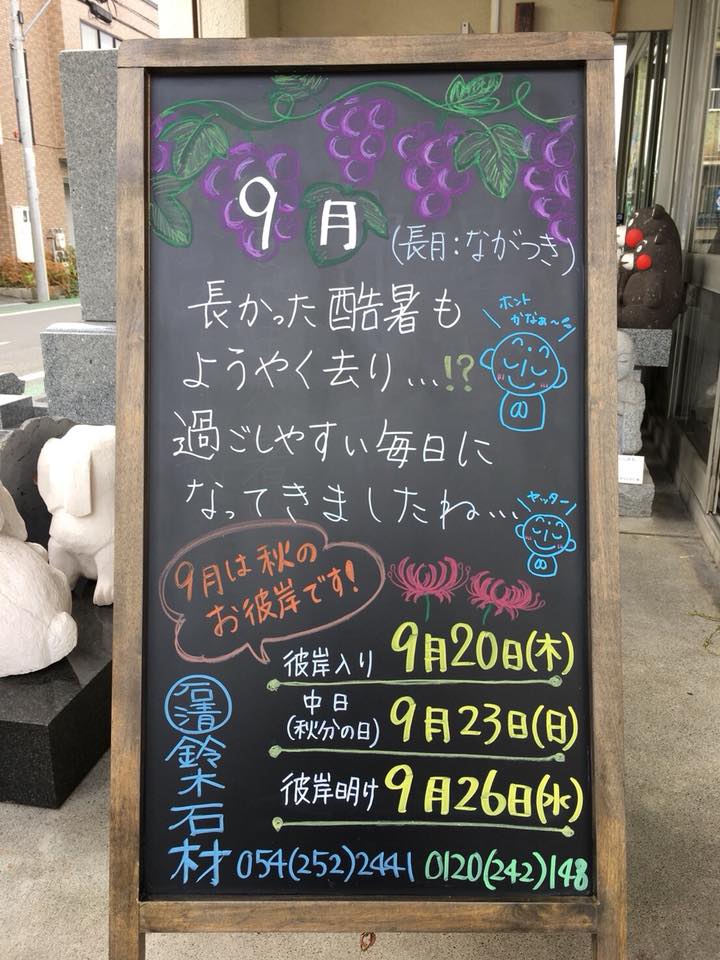 9月
(長月:ながつき)
長かった酷暑も
ようやく去り…!?
ホント
かなぁ〜
過ごしやすい毎日に
なってきましたね…
ヤッター
9月は秋の
お彼岸です!
彼岸入り 9月20日(木)
中日
(秋分の日) 9月23日(日)
彼岸明け 9月26日(水)
石清
鈴木石材
054(252)2441 0120(242)148